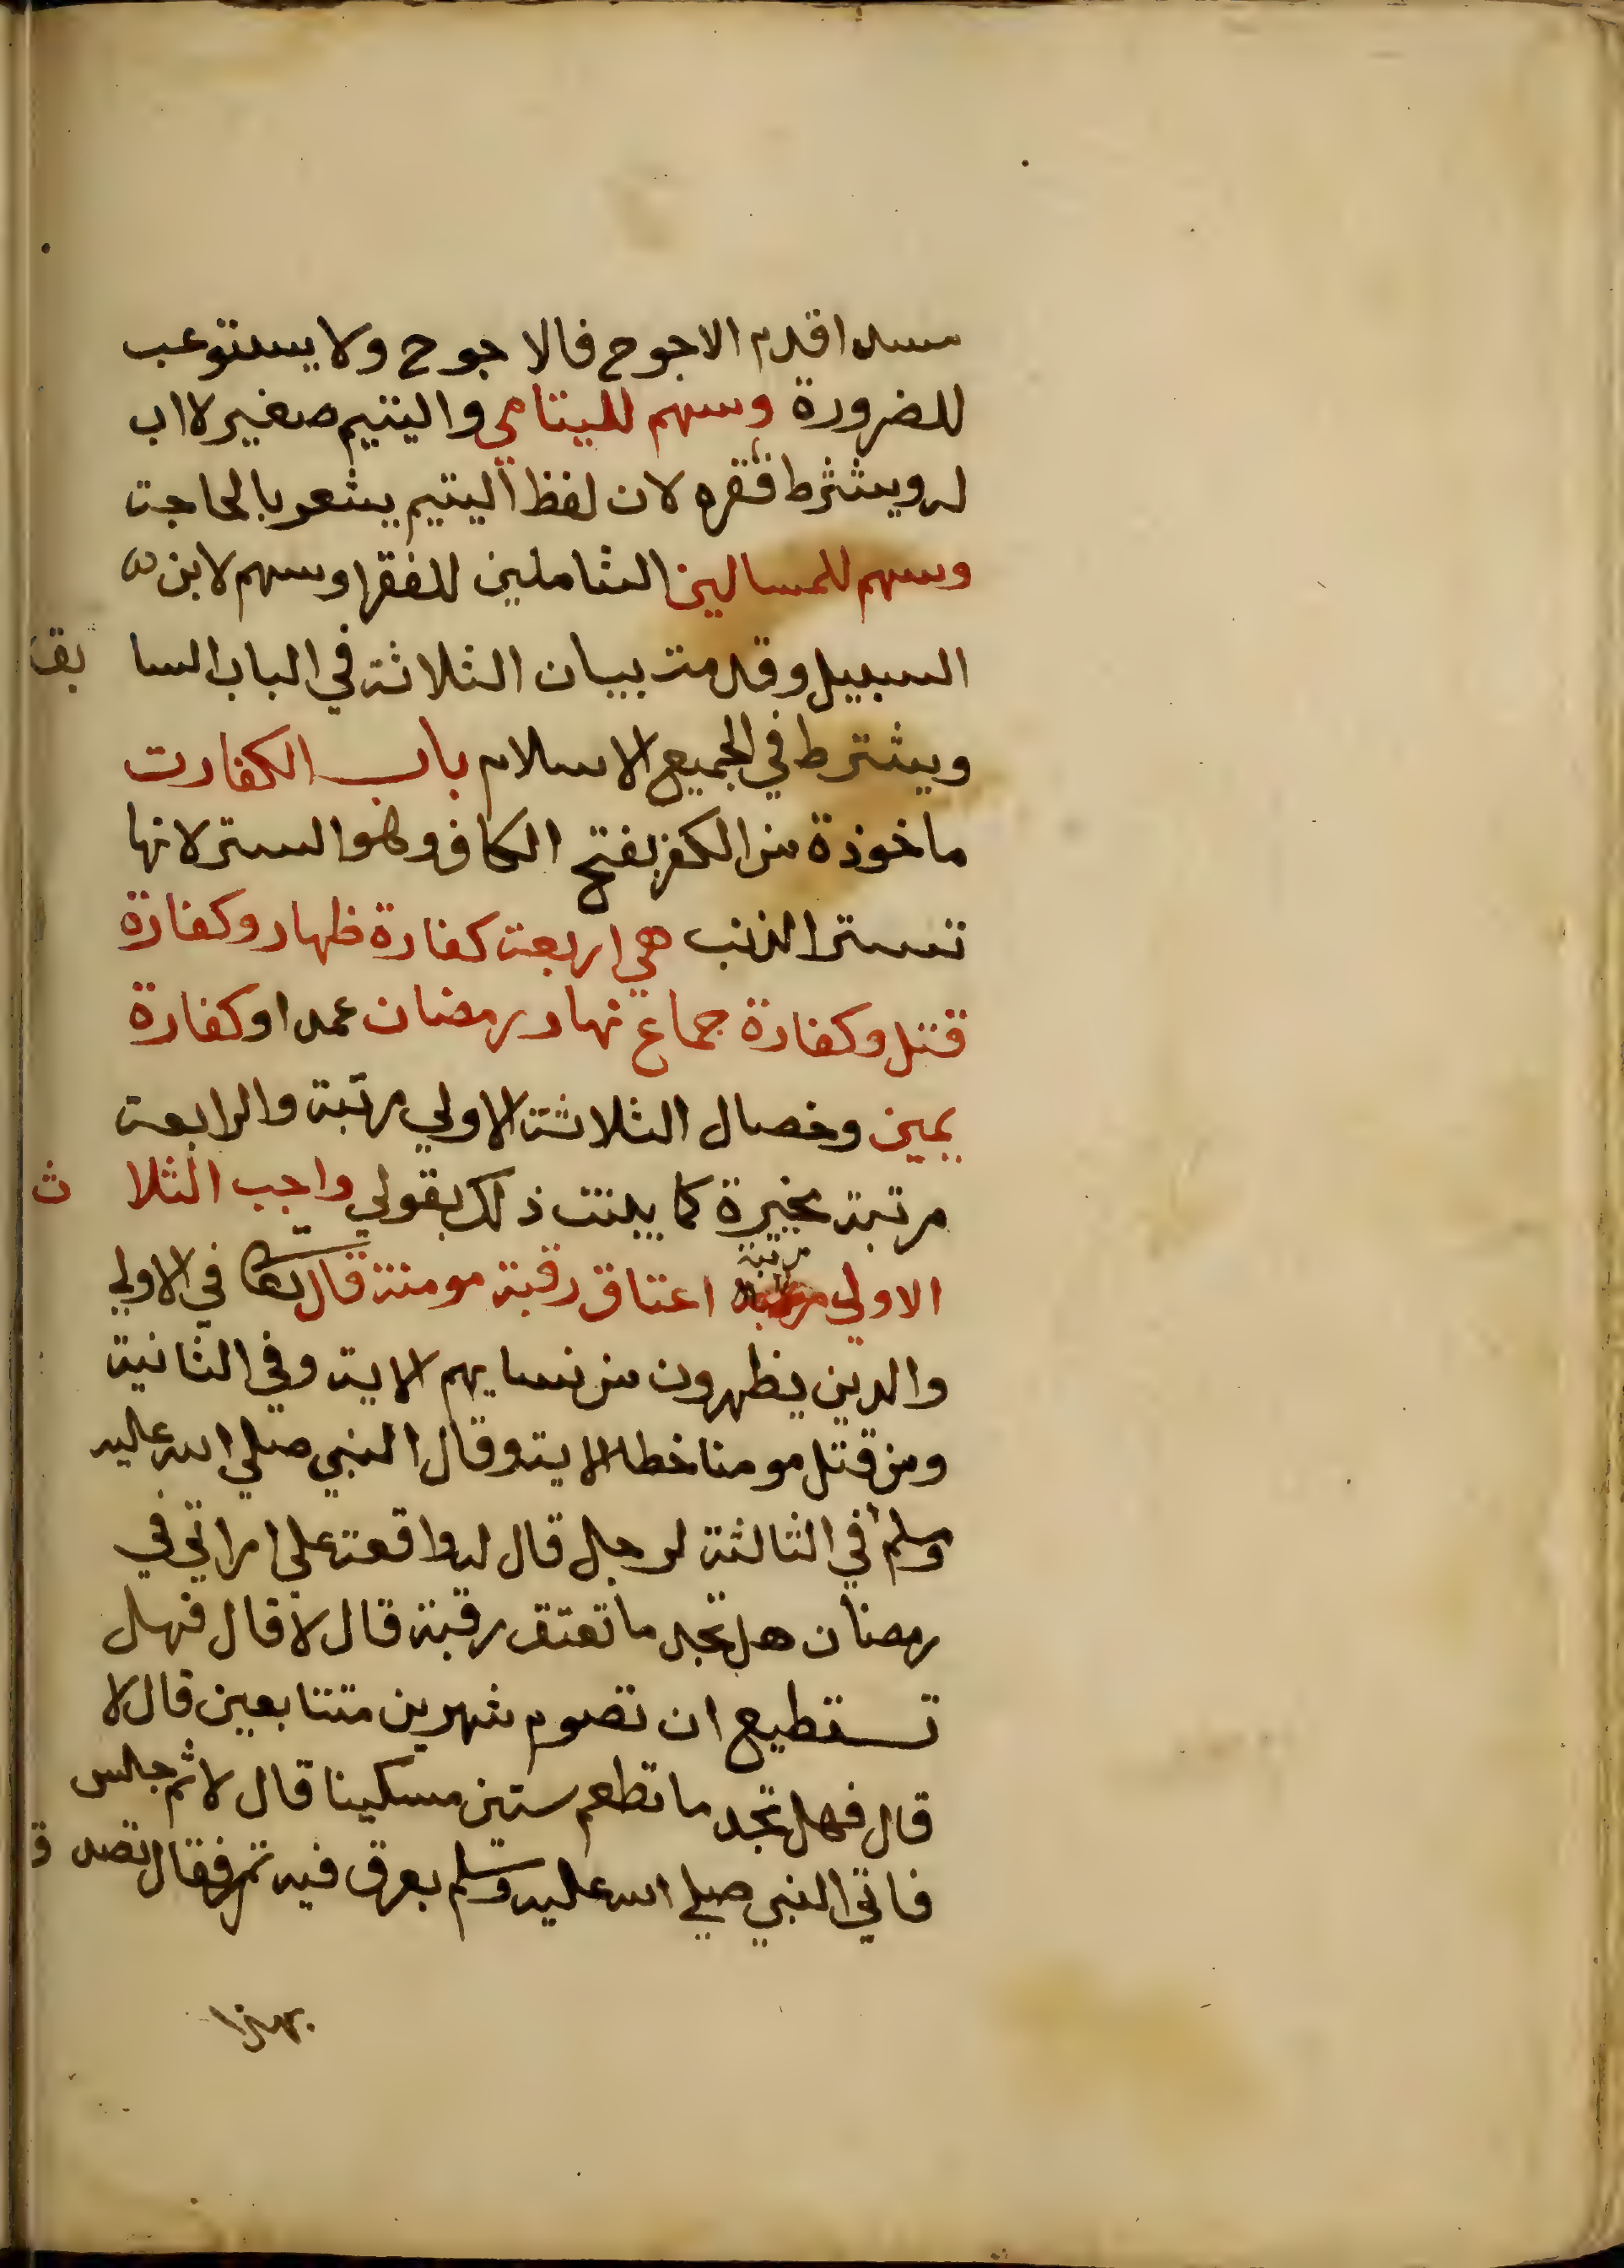 مسدا قدم الاحوج فالاحوج ولا يستوعب
للضرورة وسهم لليتامي واليتيم صغير لا اب
له ويشترط فقره لان لفظ اليتيم يشعر بالحاجة
وسهم للمساكين الشاملين للفقرا وسهم لابن
السبيل وقدمت بيان الثلاثة في الباب السابق
ويشترط في الجميع الاسلام باب الكفارت
ماخوذة من الكفر بفتح الكاف وهو الستر لانها
تستر الذنب هي اربعة كفارة ظهار وكفارة
قتل وكفارة جماع نهار رمضان عمدا وكفارة
يمين وخصال الثلاثة الاولي مرتبة والرابعة
مرتبة مخيرة كما بينت ذلك بقولي واجب الثلاث
الاولي مرتبة اعتاق رقبة مومنة قال تعالي في الاولي
والدين يظهرون من نسايهم الاية وفي الثانية
ومن قتل مومنا خطا الاية وقال النبي صلي الله عليه
وسلم في الثالثة لرجل قال له واقعة علي امراتي في
رمضان هل تجد ما تعتق رقبة قال لا قال فهل
تستطيع ان تصوم شهرين متتابعين قال لا
قال فهل تجد ما تطعم ستين مسكينا قال لا ثم جلس
فاتي النبي صلي الله عليه وسلم بعرق فيه تمر فقال تصدق
بهذا